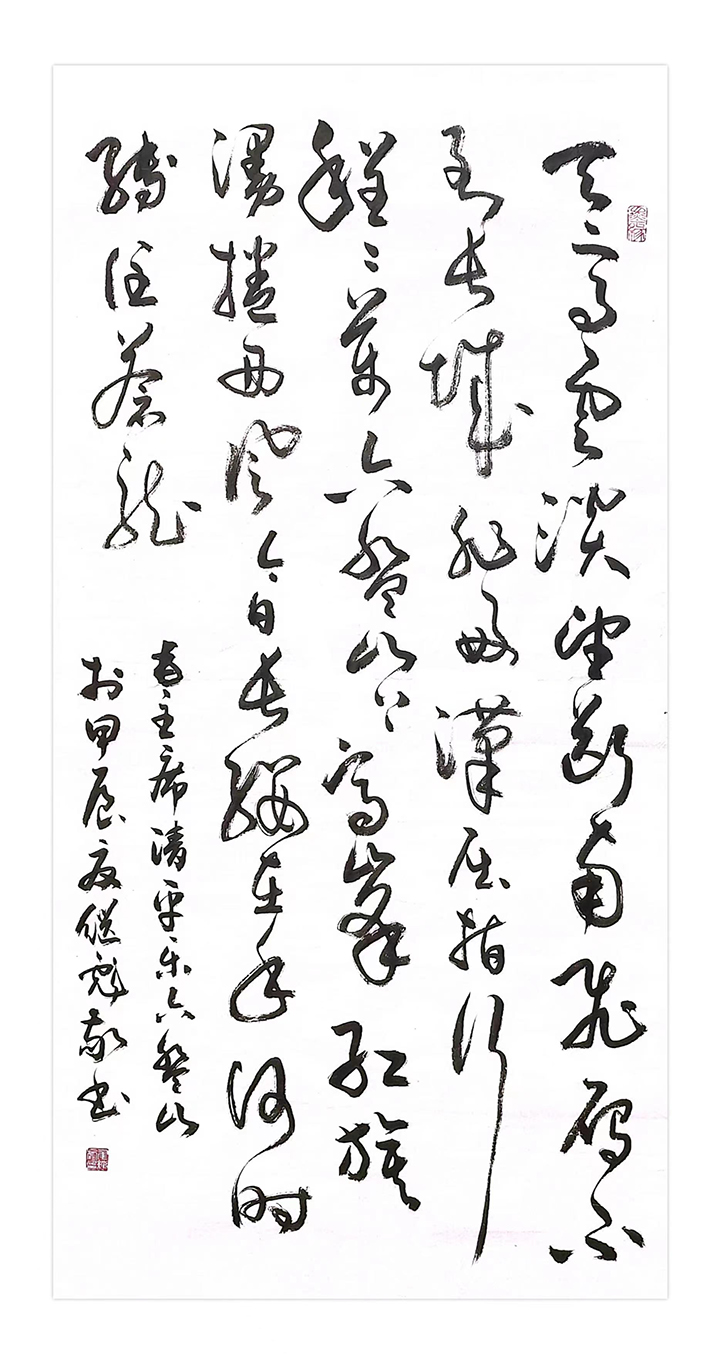 天高雲淡望斷南飛雁不
到長城非好漢屈指行
程二萬六盤山上高峰紅旗
漫捲西風今日長纓在手何時
縛住蒼龍
毛主席清平樂六盤山
於甲辰夏继彪敬書